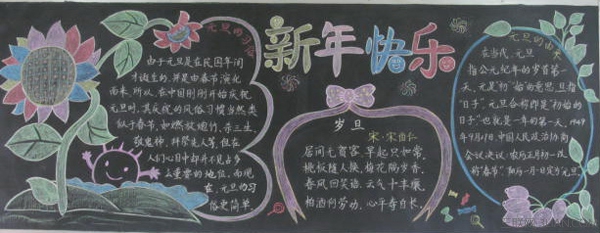 元旦的习俗
由于元旦是在民国年间
才诞生的,并是由春节演化
而来,所以,在中国刚刚开始庆祝
元旦时,其庆祝的风俗习惯当然类
似于春节,如燃放炮竹、杀三生、
敬鬼神、拜祭先人等,但在
人们心目中却并不见占多
么重要的地位,而现
在,元旦的习
俗更简单.
新年快乐
岁旦
宋·宋伯仁
居间无贺客,早起只如常,
桃板随人换,梅花隔岁香.
春风回笑语,云气卜丰穰,
柏酒何劳劝,心平寿自长.
元旦的由来
在当代,元旦
指公元纪年的岁首第一
天,元是"初""始"的意思,旦指
"日子",元旦合称即是"初始的
日子",也就是一年的第一天,1949
年9月27日,中国人民政治协商
会议决议:农历正月初一改
称"春节",阳历一月一日定为元旦.